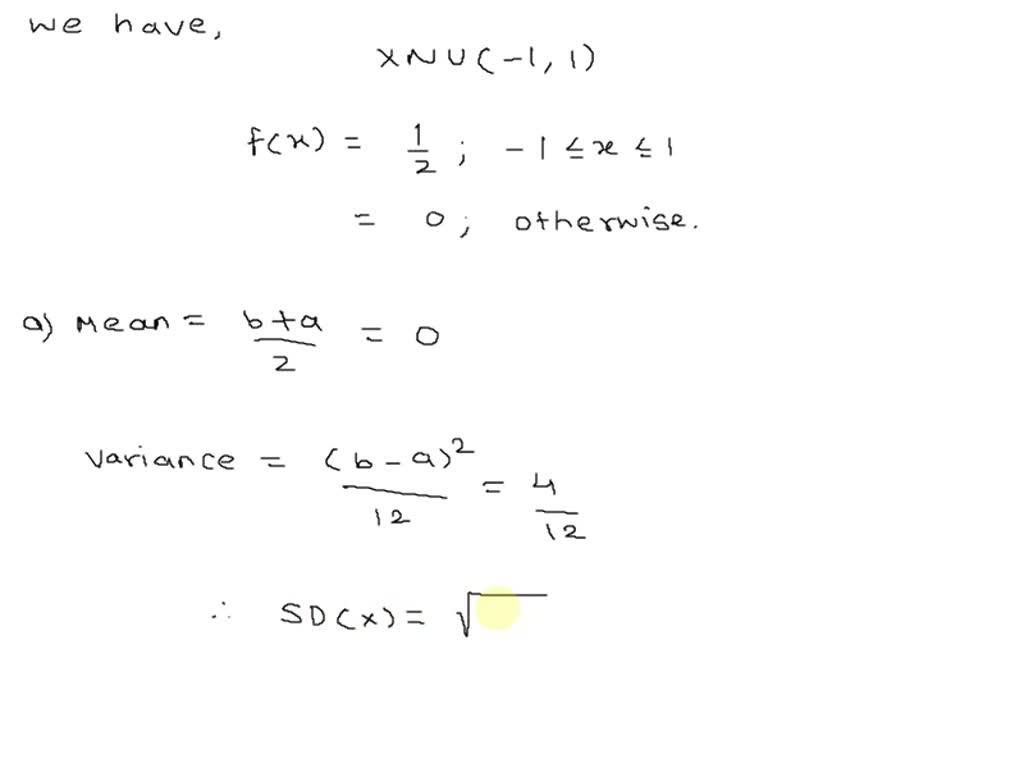 we have,
X ~ U(-1, 1)
f(x) = 1/2 ; -1 ≤ x ≤ 1
= 0 ; otherwise.
a) Mean = b+a/2 = 0
Variance = (b-a)²/12 = 4/12
∴ SD(X) = √